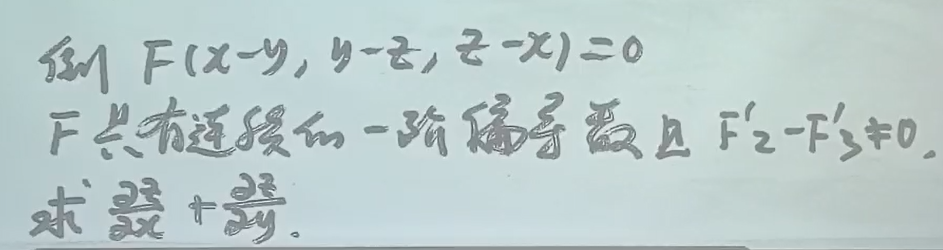 例 F(x-y, y-z, z-x)=0
F具有连续的一阶偏导数且 F'₂-F'₃≠0,
求 ∂z/∂x + ∂z/∂y.